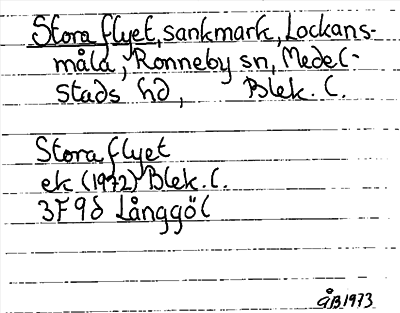 Stora flyet, sankmark, Lockans-
måla, Ronneby sn, Medel-
stads hd, Blek. l.
Stora flyet
ek (1972) Blek. l.
3F 9d Långgöl
ÅB 1973